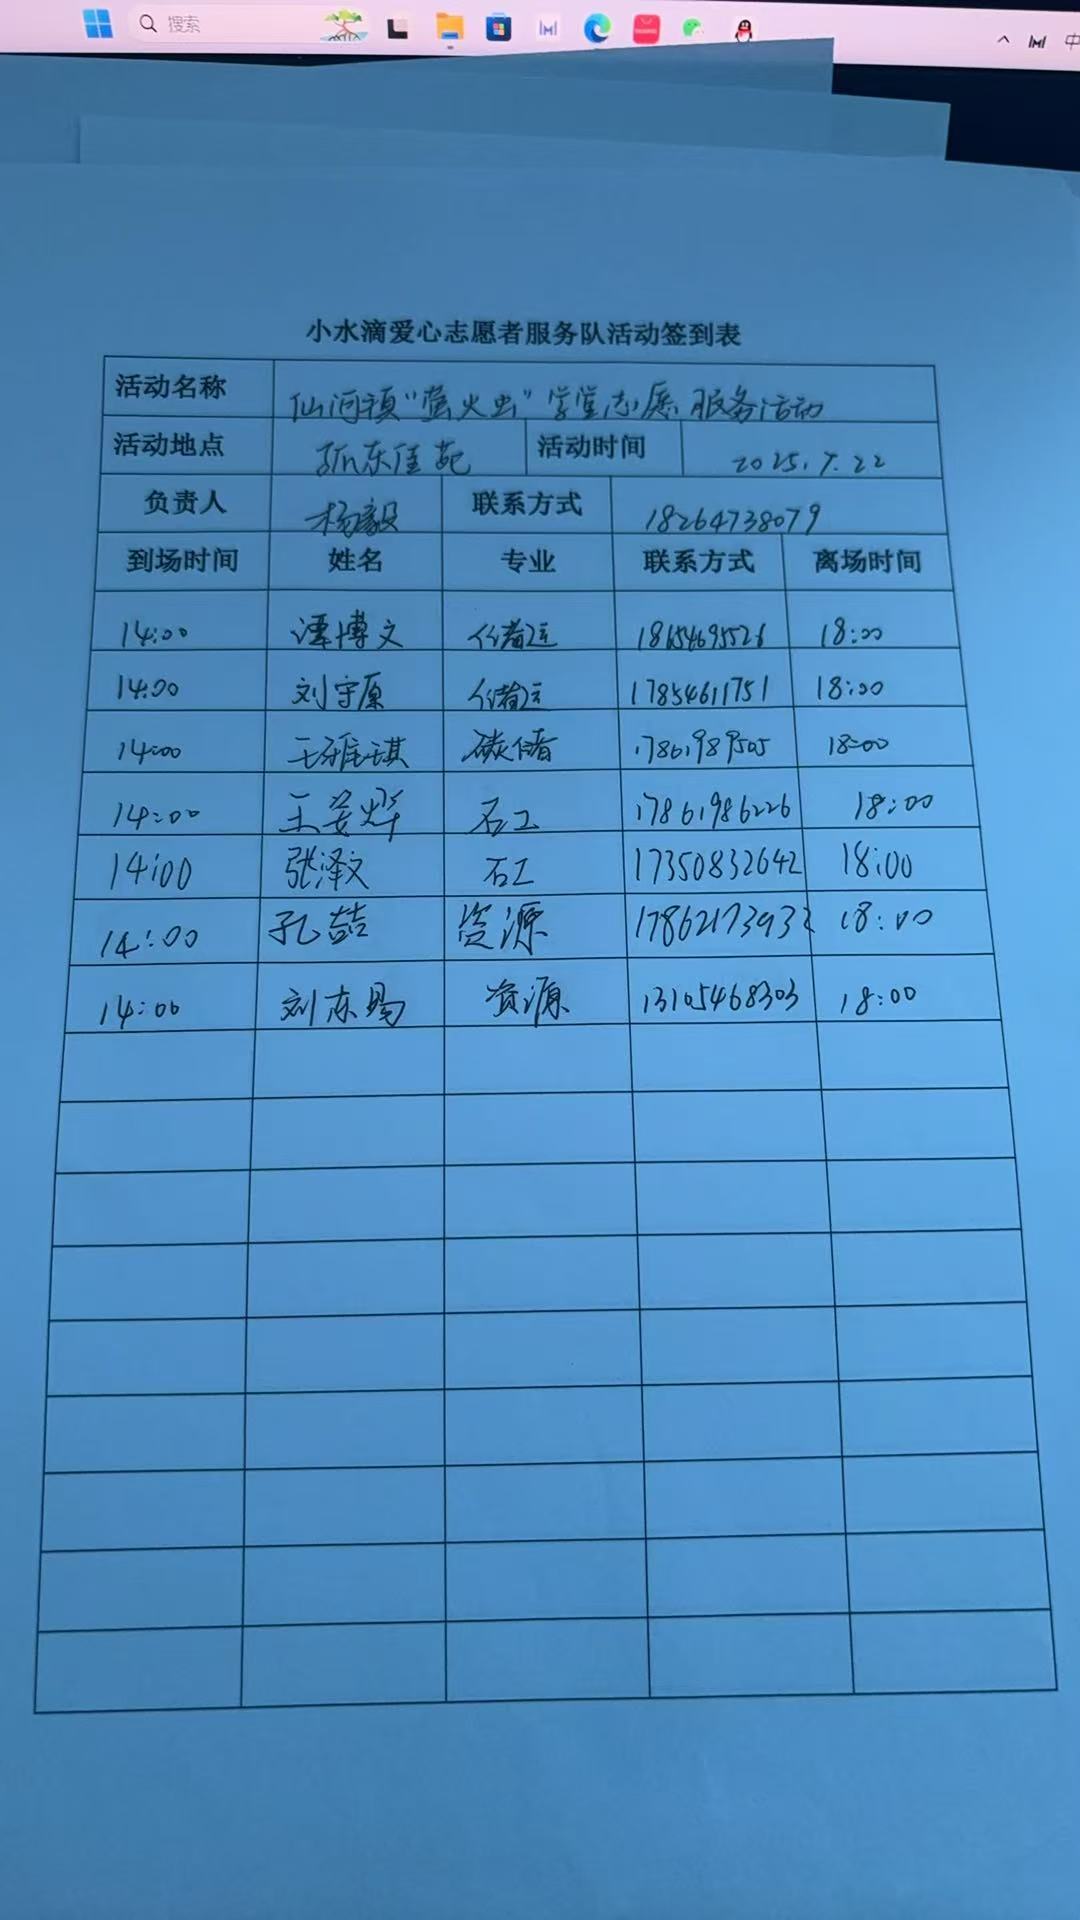 搜索
中
小水滴爱心志愿者服务队活动签到表
活动名称 仙河镇“萤火虫”学堂志愿服务活动
活动地点 孤东佳苑 活动时间 2025.7.22
负责人 杨毅 联系方式 18264738079
到场时间 姓名 专业 联系方式 离场时间
14:00 谭博文 储运 18654695526 18:00
14:00 刘宇原 储运 17854611751 18:00
14:00 王雅琪 碳储 17861989505 18:00
14:00 王姜烨 石工 17861986226 18:00
14:00 张泽文 石工 17350832642 18:00
14:00 孔喆 资源 17862173932 18:00
14:00 刘东旸 资源 13105468303 18:00